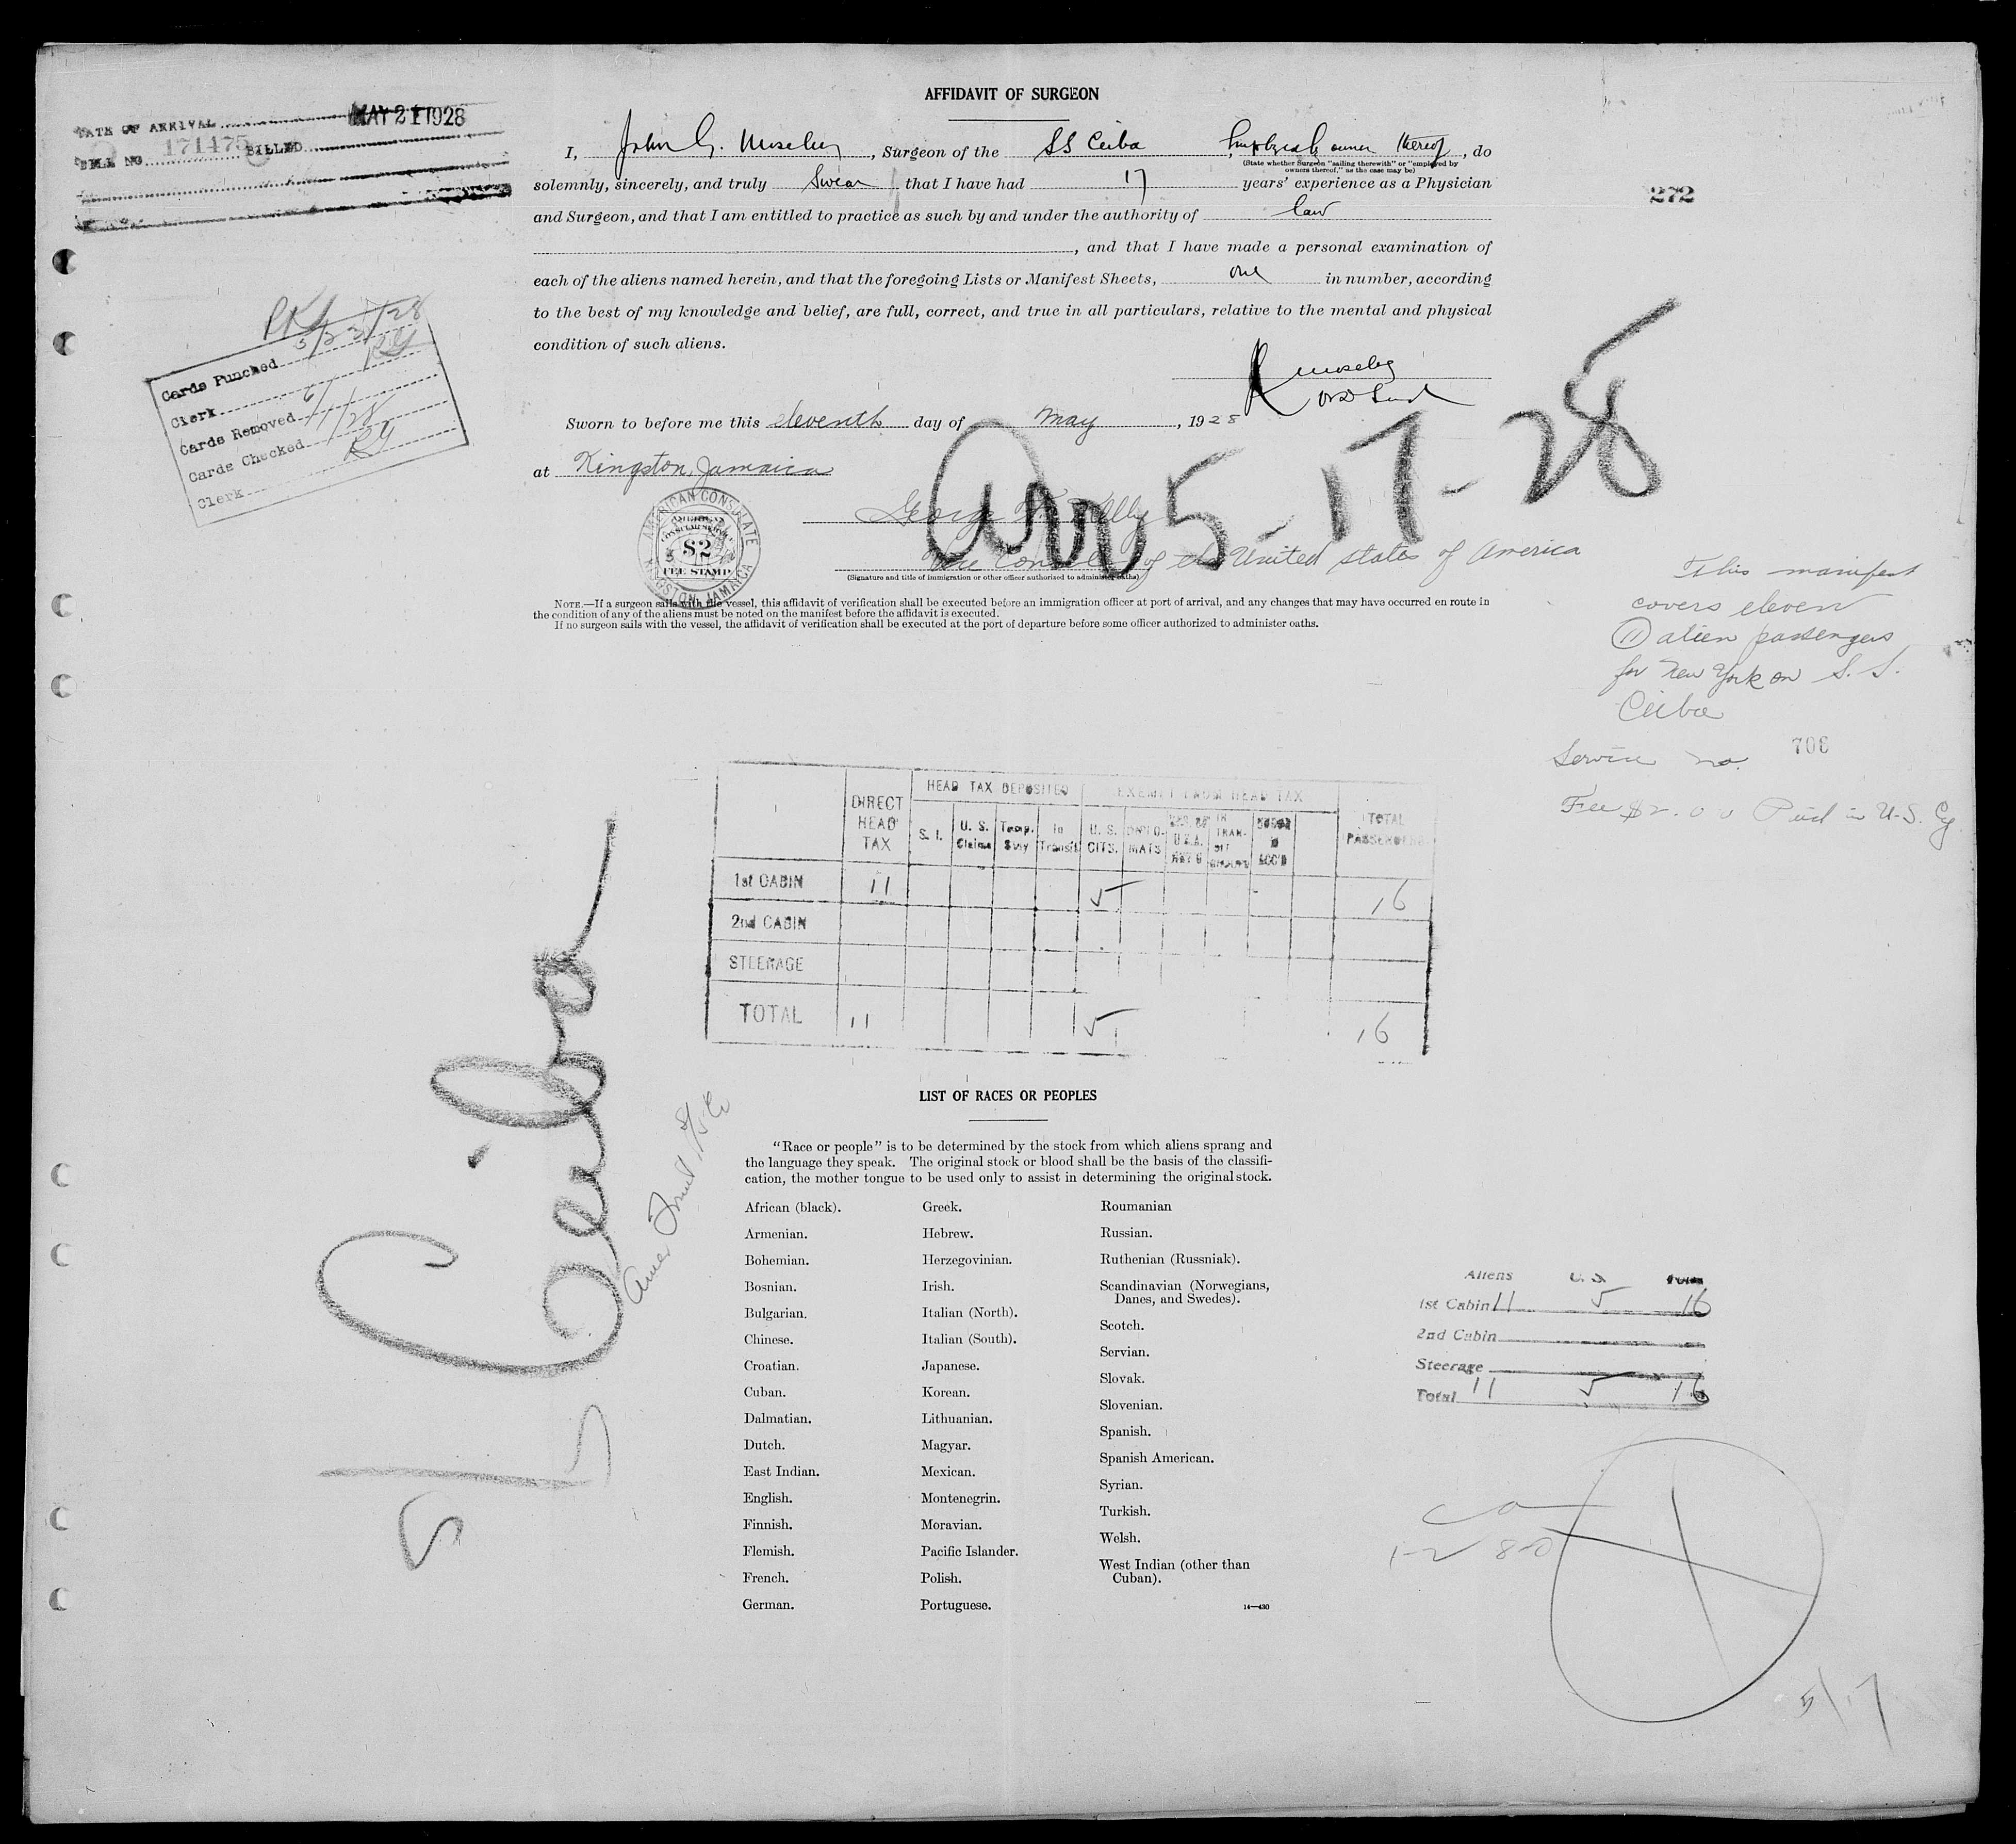 AFFIDAVIT OF SURGEON
DATE OF ARRIVAL MAY 21 1928
BILL NO. 171475 BILLED
I, John G. Moseley, Surgeon of the SS Ceiba, Employed by owner thereof, do
(State whether Surgeon "sailing therewith" or "employed by
owners thereof," as the case may be)
solemnly, sincerely, and truly Swear that I have had 17 years' experience as a Physician
and Surgeon, and that I am entitled to practice as such by and under the authority of law
, and that I have made a personal examination of
each of the aliens named herein, and that the foregoing Lists or Manifest Sheets, one in number, according
to the best of my knowledge and belief, are full, correct, and true in all particulars, relative to the mental and physical
condition of such aliens.
272
Moseley
Sworn to before me this eleventh day of May, 1928
at Kingston, Jamaica
Arr 5-17-28
Cards Punched 5/23/28
Clerk RG
Cards Removed 6/1/28
Cards Checked
Clerk RG
AMERICAN CONSULATE
KINGSTON, JAMAICA
AMERICAN
CONSULAR SERVICE
$2
FEE STAMP
George
Vice Consul of the United States of America
(Signature and title of immigration or other officer authorized to administer oaths)
NOTE.—If a surgeon sails with the vessel, this affidavit of verification shall be executed before an immigration officer at port of arrival, and any changes that may have occurred en route in
the condition of any of the aliens must be noted on the manifest before the affidavit is executed.
If no surgeon sails with the vessel, the affidavit of verification shall be executed at the port of departure before some officer authorized to administer oaths.
This manifest
covers eleven
(11) alien passengers
for New York on S. S.
Ceiba
Service no. 706
Fee $2.00 Paid in U.S. Cy
DIRECT HEAD TAX HEAD TAX DEPOSITED EXEMPT FROM HEAD TAX TOTAL PASSENGERS
S. I. U. S. Claims Temp. Stay In Transit U. S. CITS. DIPLO-MATS
1st CABIN 11 5 16
2nd CABIN
STEERAGE
TOTAL 11 5 16
SS Ceiba
LIST OF RACES OR PEOPLES
"Race or people" is to be determined by the stock from which aliens sprang and
the language they speak. The original stock or blood shall be the basis of the classifi-
cation, the mother tongue to be used only to assist in determining the original stock.
African (black).
Armenian.
Bohemian.
Bosnian.
Bulgarian.
Chinese.
Croatian.
Cuban.
Dalmatian.
Dutch.
East Indian.
English.
Finnish.
Flemish.
French.
German.
Greek.
Hebrew.
Herzegovinian.
Irish.
Italian (North).
Italian (South).
Japanese.
Korean.
Lithuanian.
Magyar.
Mexican.
Montenegrin.
Moravian.
Pacific Islander.
Polish.
Portuguese.
Roumanian
Russian.
Ruthenian (Russniak).
Scandinavian (Norwegians,
Danes, and Swedes).
Scotch.
Servian.
Slovak.
Slovenian.
Spanish.
Spanish American.
Syrian.
Turkish.
Welsh.
West Indian (other than
Cuban).
14—430
Aliens U. S. Total
1st Cabin 11 5 16
2nd Cabin
Steerage
Total 11 5 16
5/17